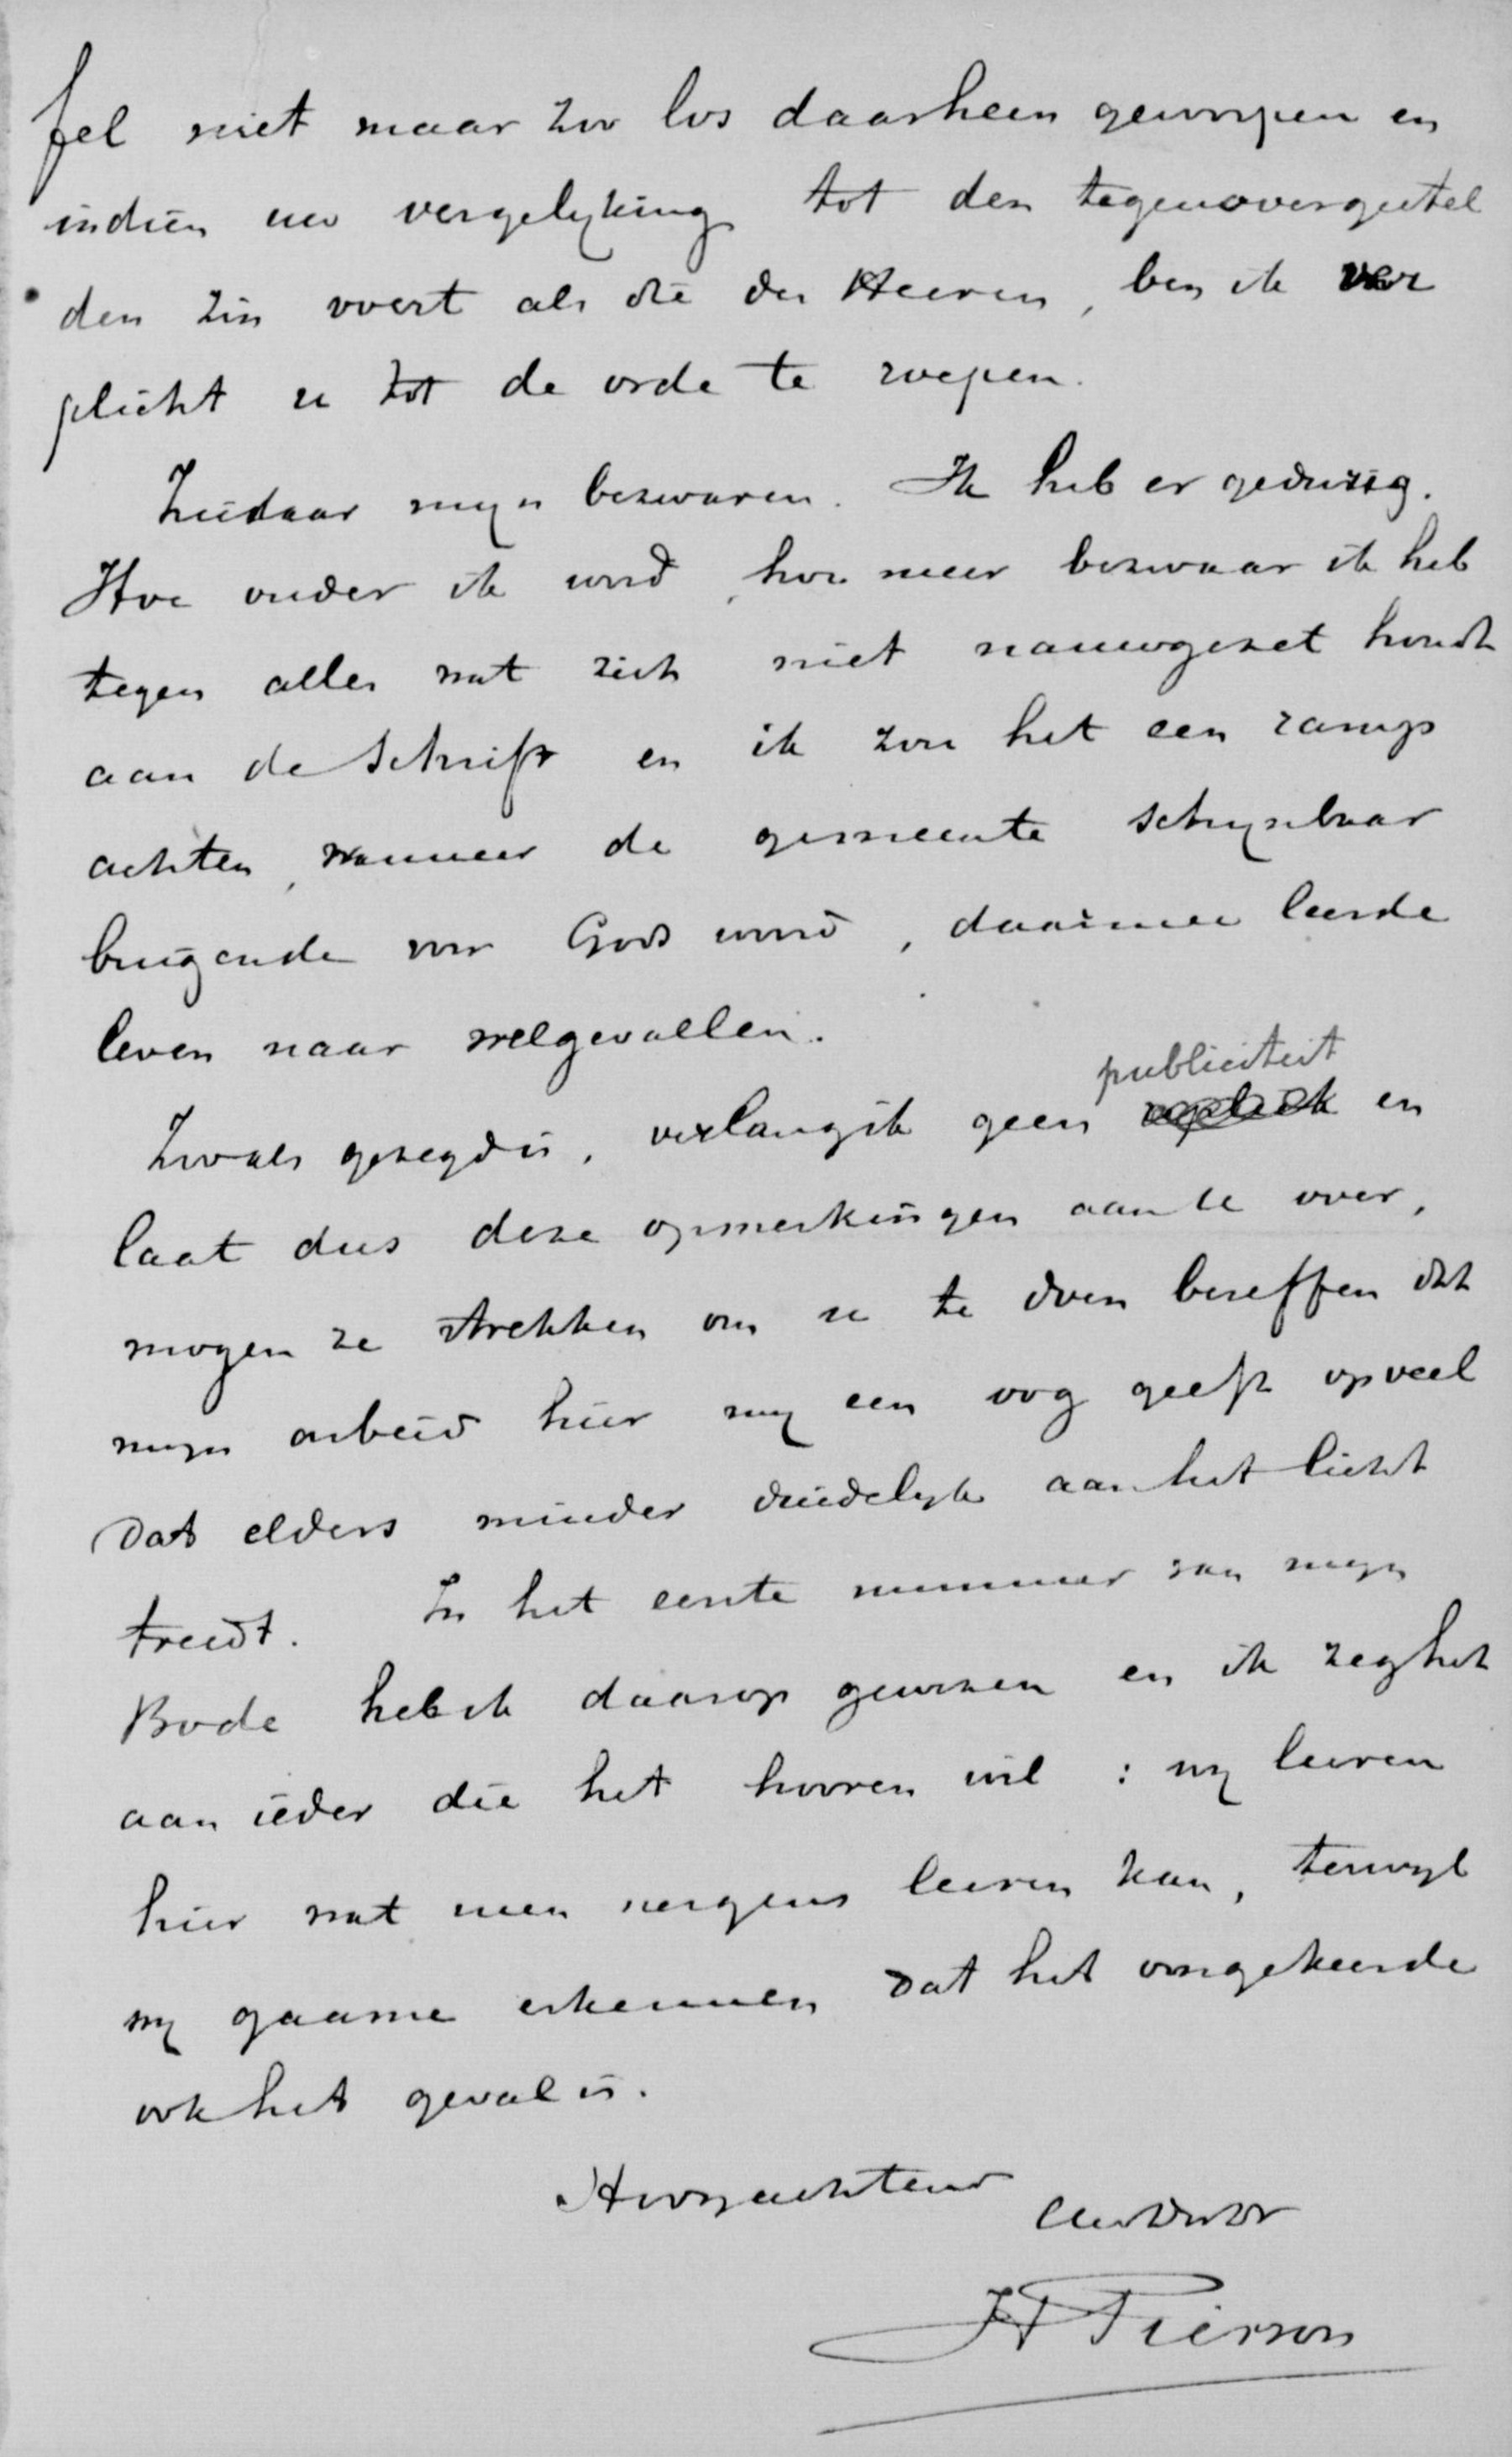 fel niet maar zoo los daarheen geworpen en
indien uw vergelyking tot den tegenovergestel
den zin voert als die des Heeren, ben ik ver
plicht u tot de orde te roepen.
Ziedaar myn bezwaren. Ik heb er gedurig.
Hoe ouder ik word, hoe meer bezwaar ik heb
tegen alles wat zich niet nauwgezet houdt
aan de Schrift en ik zou het een ramp
achten, wanneer de gemeente schynbaar
buigende voor Gods woord, daarmee leerde
leven naar welgevallen.
publiciteit
Zooals gezegd is, verlang ik geen en
laat dus deze opmerkingen aan U over,
mogen ze strekken om u te doen beseffen dat
myn arbeid hier my een oog geeft op veel
dat elders minder duidelyk aan het licht
treedt. In het eerste nummer van myn
Bode heb ik daarop gewezen en ik zeg het
aan ieder die het hooren wil : wy leeren
hier wat men nergens leeren kan, terwyl
wy gaarne erkennen dat het omgekeerde
ook het geval is.
Hoogachtend
HPierson